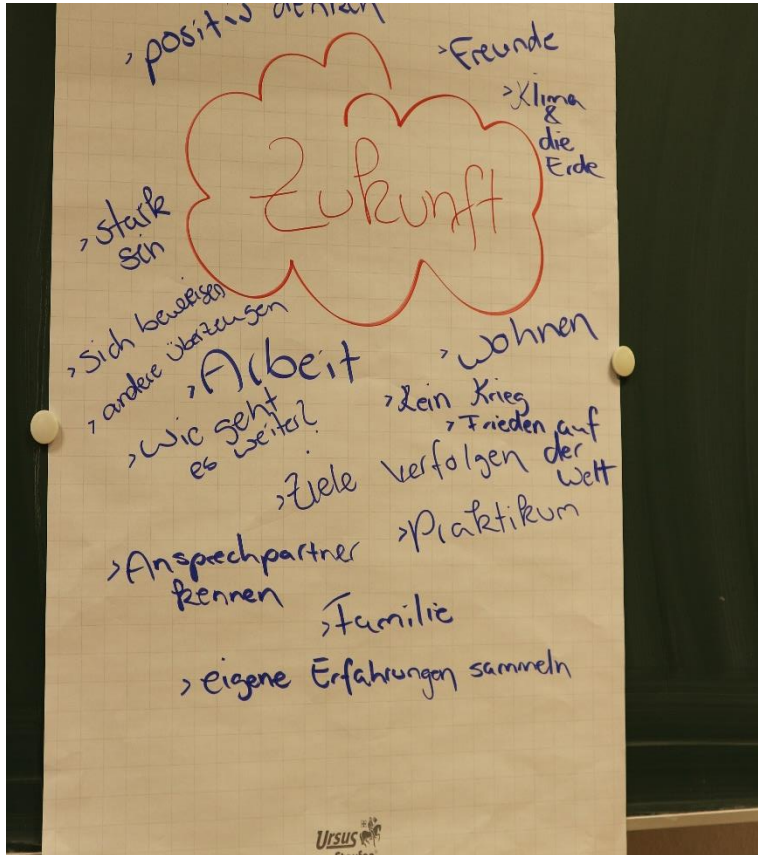 > positiv denken
> Freunde
> Klima
&
die
Erde
Zukunft
> stark
sein
> sich beweisen
> andere überzeugen
> Arbeit
> wohnen
> Wie geht
es weiter?
> Kein Krieg
> Frieden auf
der
Welt
> Ziele verfolgen
> Praktikum
> Ansprechpartner
kennen
> Familie
> eigene Erfahrungen sammeln
Ursus